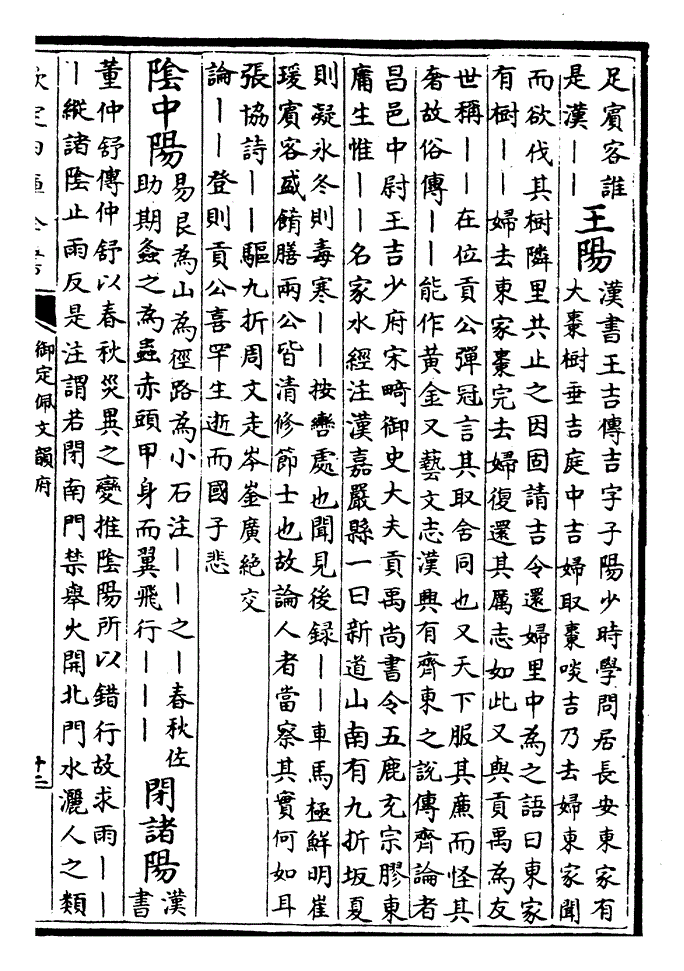 足賓客誰
是漢｜｜
王陽
漢書王吉傳吉字子陽少時學問居長安東家有
大棗樹垂吉庭中吉婦取棗啖吉乃去婦東家聞
而欲伐其樹隣里共止之因固請吉令還婦里中為之語曰東家
有樹｜｜婦去東家棗完去婦復還其厲志如此又與貢禹為友
世稱｜｜在位貢公彈冠言其取舍同也又天下服其廉而怪其
奢故俗傳｜｜能作黃金又藝文志漢興有齊東之說傳齊論者
昌邑中尉王吉少府宋畸御史大夫貢禹尚書令五鹿充宗膠東
庸生惟｜｜名家水經注漢嘉嚴縣一曰新道山南有九折坂夏
則凝氷冬則毒寒｜｜按轡處也聞見後録｜｜車馬極鮮明崔
瑗賓客盛餚膳兩公皆清修節士也故論人者當察其實何如耳
張協詩｜｜驅九折周文走岑崟廣絶交
論｜｜登則貢公喜罕生逝而國子悲
陰中陽
易艮為山為徑路為小石注｜｜之｜春秋佐
助期螽之為蟲赤頭甲身而翼飛行｜｜｜
閉諸陽
漢
書
董仲舒傳仲舒以春秋災異之變推陰陽所以錯行故求雨｜｜
｜縱諸陰止雨反是注謂若閉南門禁舉火開北門水灑人之類
欽定四庫全書
御定佩文韻府
十二